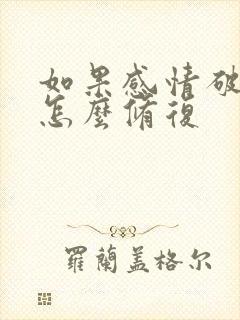 如果感情破
怎麼脩復
羅蘭盖格尔